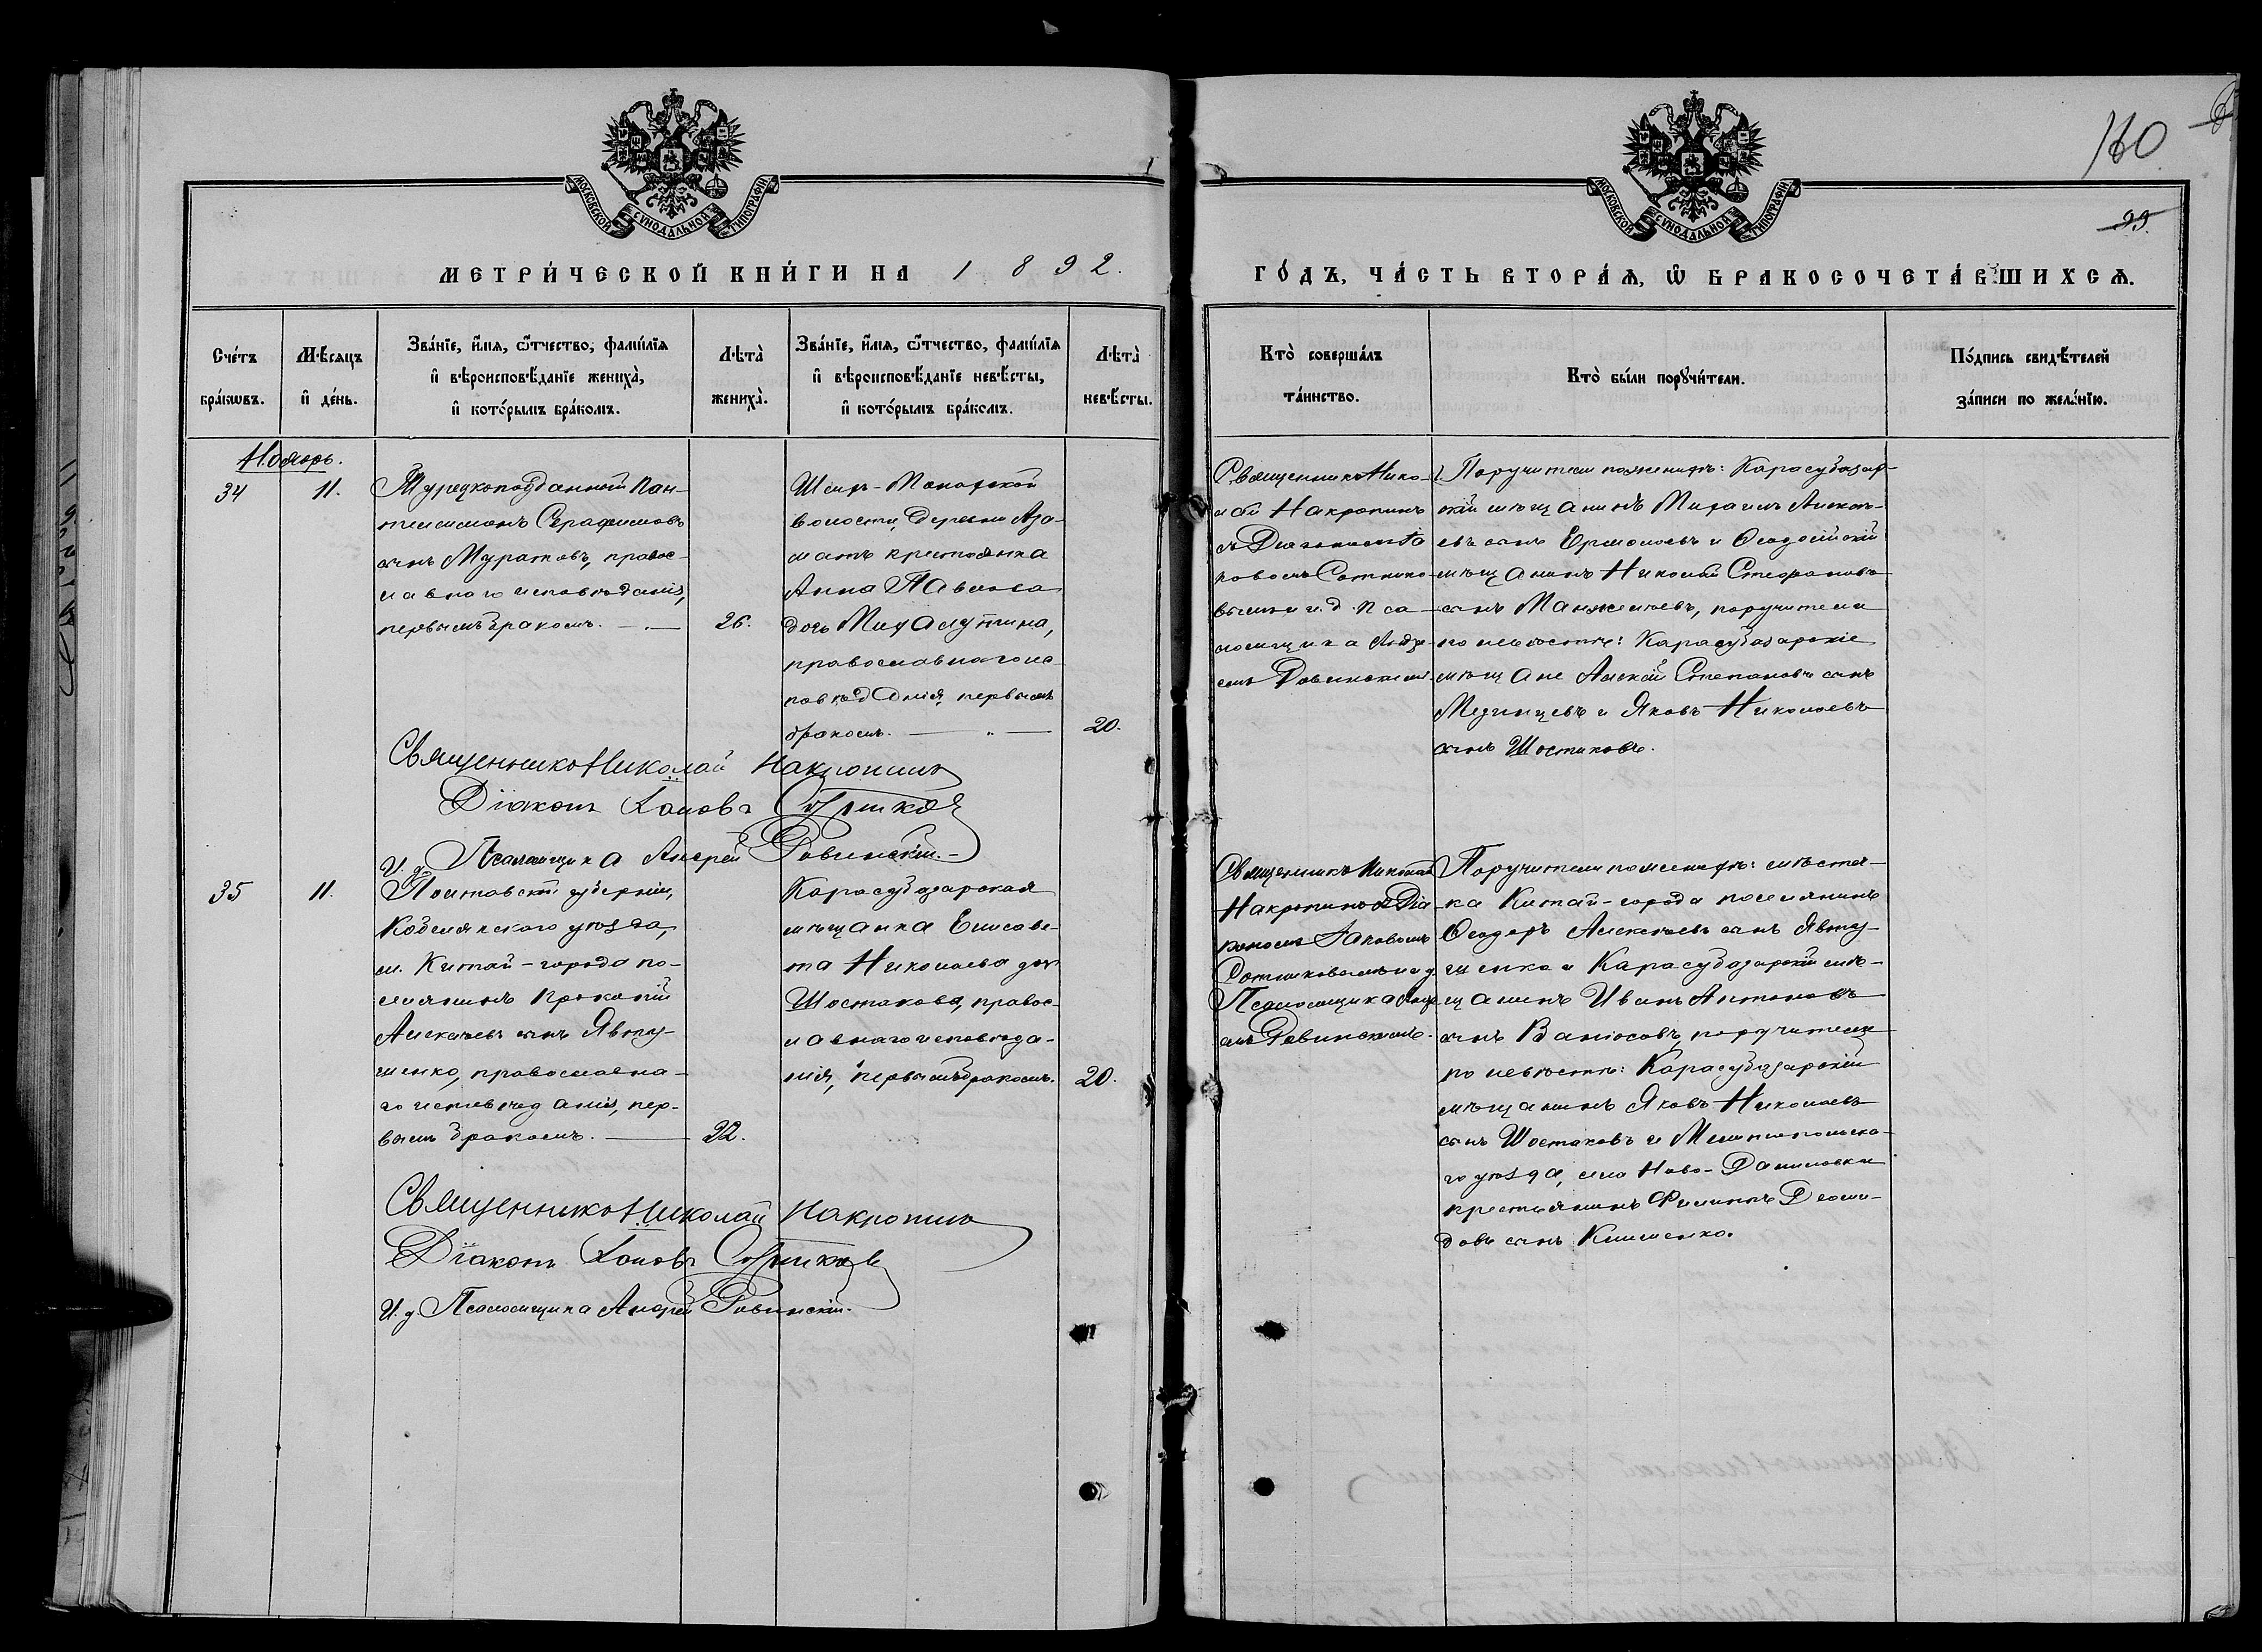 160
99.
МОСКОВСКОЙ СУНОДАЛЬНОЙ ТИПОГРАФІИ
МОСКОВСКОЙ СУНОДАЛЬНОЙ ТИПОГРАФІИ
МЕТРИ́ЧЕСКОЙ КНИ́ГИ НА 1892.
ГО́ДЪ, ЧА́СТЬ ВТОРА́Ѧ, Ѽ БРАКОСОЧЕТА́ВШИХСѦ.
Сче́тъ
бра́кѡвъ.
Мѣ́сяцъ
и҆ де́нь.
Зва́нїе, и҆́мя, ѻ҆́тчество, фами́лїя
и҆ вѣроисповѣ́данїе жениха̀,
и҆ кото́рымъ бра́комъ.
Лѣта̀
жениха̀.
Зва́нїе, и҆́мя, ѻ҆́тчество, фами́лїя
и҆ вѣроисповѣ́данїе невѣ́сты,
и҆ кото́рымъ бра́комъ.
Лѣта̀
невѣ́сты.
Кто̀ соверша́лъ
та́инство.
Кто̀ бы́ли порꙋчи́тели.
По́дпись свидѣ́телей
за́писи по жела́нїю.
Ноябрь.
34
11.
Турецкоподданный Пан-
телимонъ Серафимовъ
сынъ Муратовъ, правос-
лавного исповѣданія,
первымъ бракомъ.
26.
Шейхъ-Монахской
волости, деревни Аза-
матъ крестьянка
Анна Павлова
дочь
православнаго ис-
повѣданія, первымъ
бракомъ.
20.
Священникъ Нико-
лай Накропинъ
съ Діакономъ Іа-
ковомъ Сотнико-
вымъ и и. д. Пса-
ломщика Андре-
емъ Ровинскимъ.
Поручители по женихѣ: Карасубазар-
скій мѣщанинъ Михаилъ Алексѣ-
евъ сынъ Ермолаевъ и Ѳеодосійскій
мѣщанинъ Николай Стефановъ
сынъ Манжелаевъ, поручители
по невѣстѣ: Карасубазарскіе
мѣщане Алексѣй Степановъ сынъ
Мединцевъ и Яковъ Николаевъ
сынъ Шостаковъ.
Священникъ Николай Накропинъ
Діаконъ Іаковъ Сотниковъ
И. д. Псаломщика Андрей Ровинскій.
35
11.
Полтавской губерніи,
Кобелякского уѣзда,
м. Китай-города по-
селянинъ Прокопій
Алексѣевъ сынъ Явту-
шенко, православна-
го исповѣданія, пер-
вымъ бракомъ.
22.
Карасубазарская
мѣщанка Елисаве-
та Николаева дочь
Шостакова, правос-
лавнаго исповѣда-
нія, первымъ бракомъ.
20.
Священникъ Николай
Накропинъ съ Діа-
кономъ Іаковомъ
Сотниковымъ и и. д.
Псаломщика Андре-
емъ Ровинскимъ.
Поручители по женихѣ: мѣстеч-
ка Китай-города поселянинъ
Ѳеодоръ Алексѣевъ сынъ Явту-
шенко и Карасубазарскій мѣ-
щанинъ Иванъ Антоновъ
сынъ Ванюсовъ, поручители
по невѣстѣ: Карасубазарскій
мѣщанинъ Яковъ Николаевъ
сынъ Шостаковъ и Мелитопольска-
го уѣзда, села Ново-Даниловки
крестьянинъ Филиппъ Деми-
довъ сынъ Клименко.
Священникъ Николай Накропинъ
Діаконъ Іаковъ Сотниковъ
И. д. Псаломщика Андрей Ровинскій.